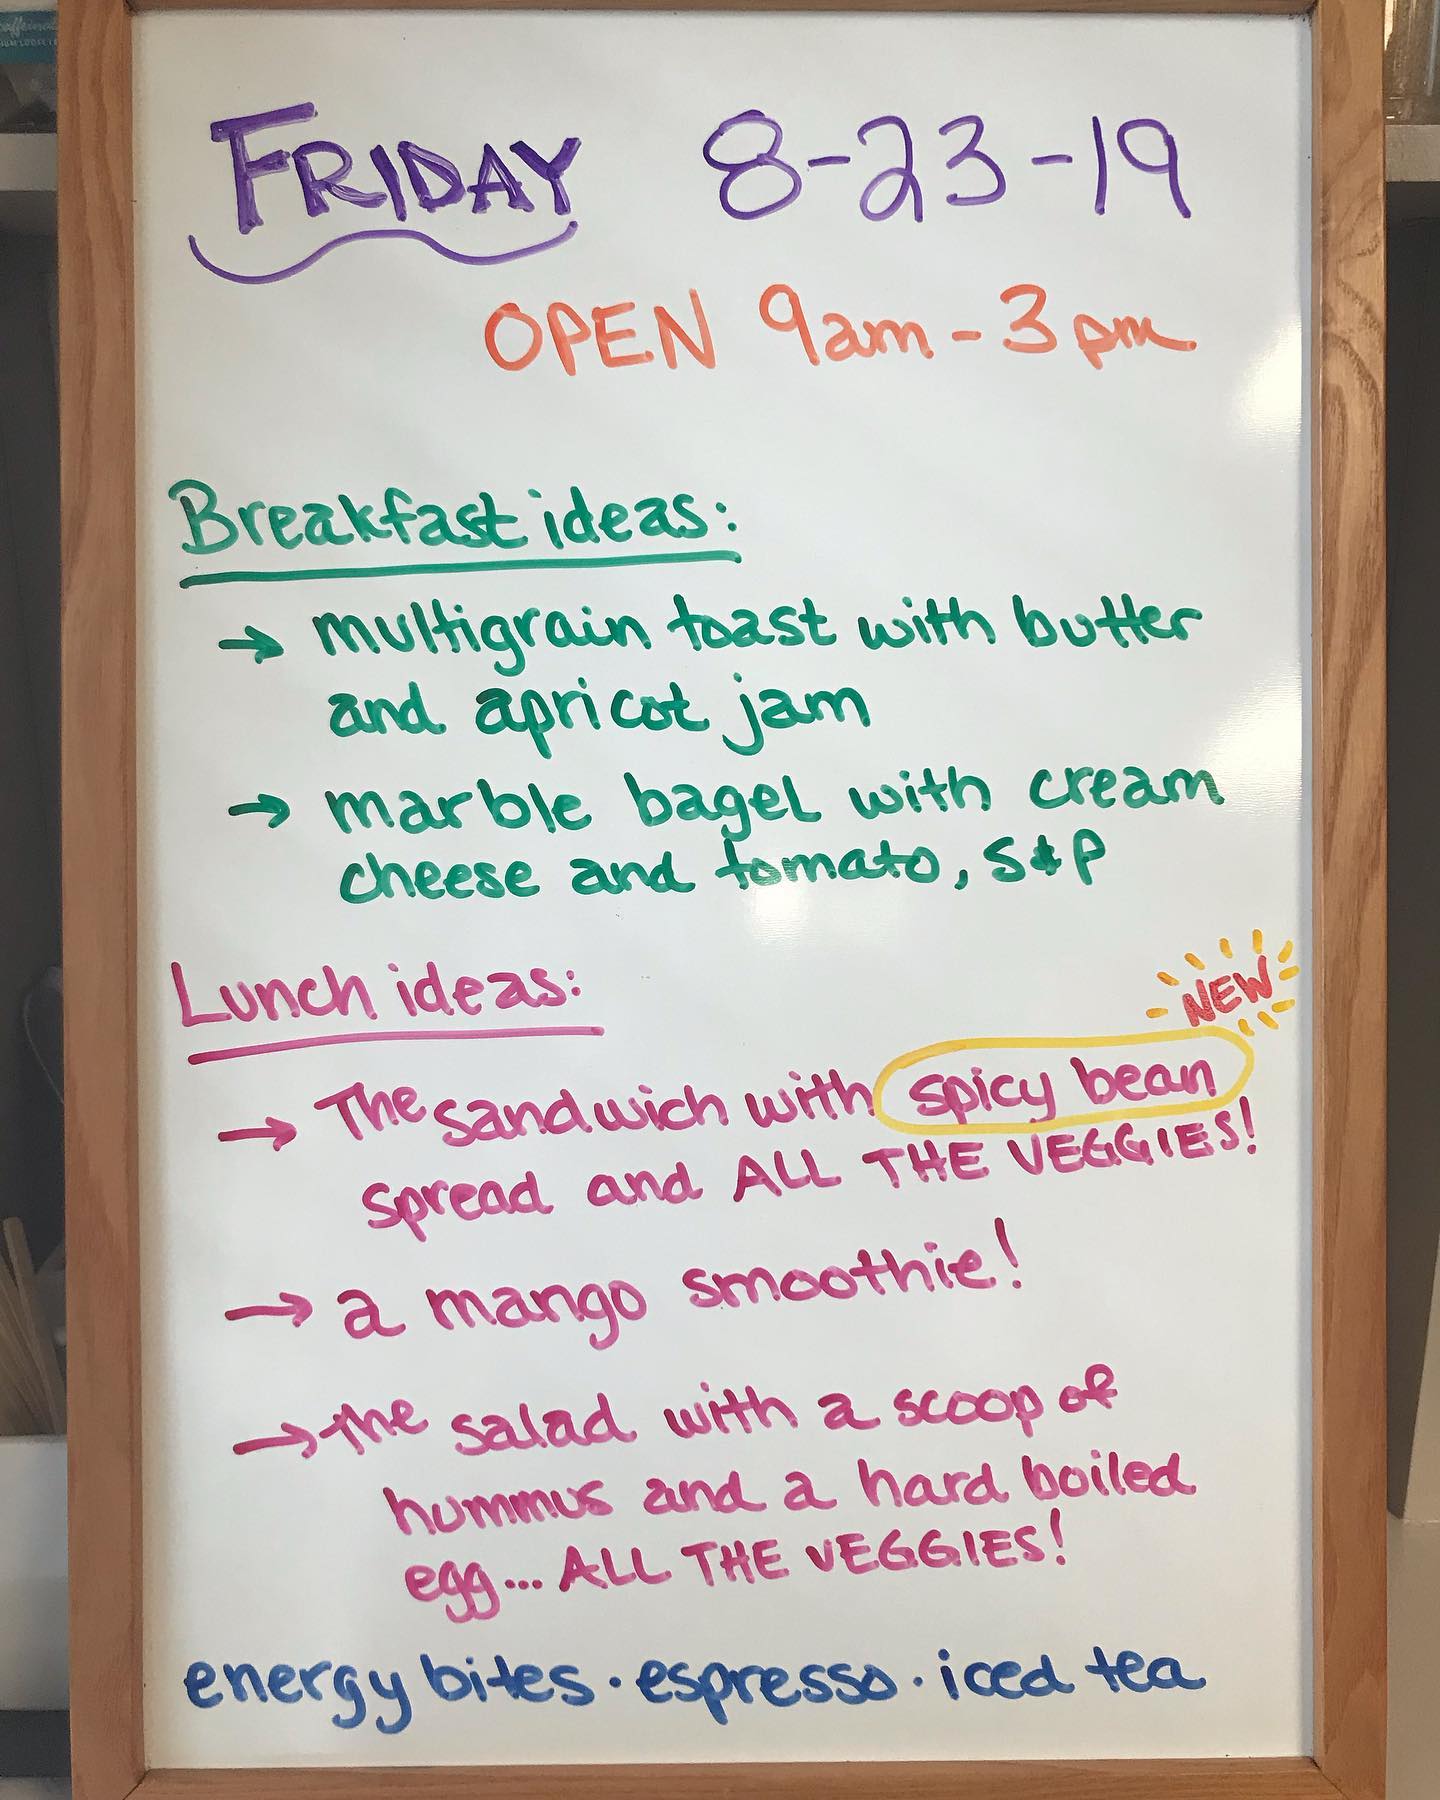 FRIDAY 8-23-19
OPEN 9am - 3pm
Breakfast ideas:
→ multigrain toast with butter
and apricot jam
→ marble bagel with cream
cheese and tomato, S&P
Lunch ideas:
NEW
→ The sandwich with spicy bean
spread and ALL THE VEGGIES!
→ a mango smoothie!
→ the salad with a scoop of
hummus and a hard boiled
egg... ALL THE VEGGIES!
energy bites · espresso · iced tea